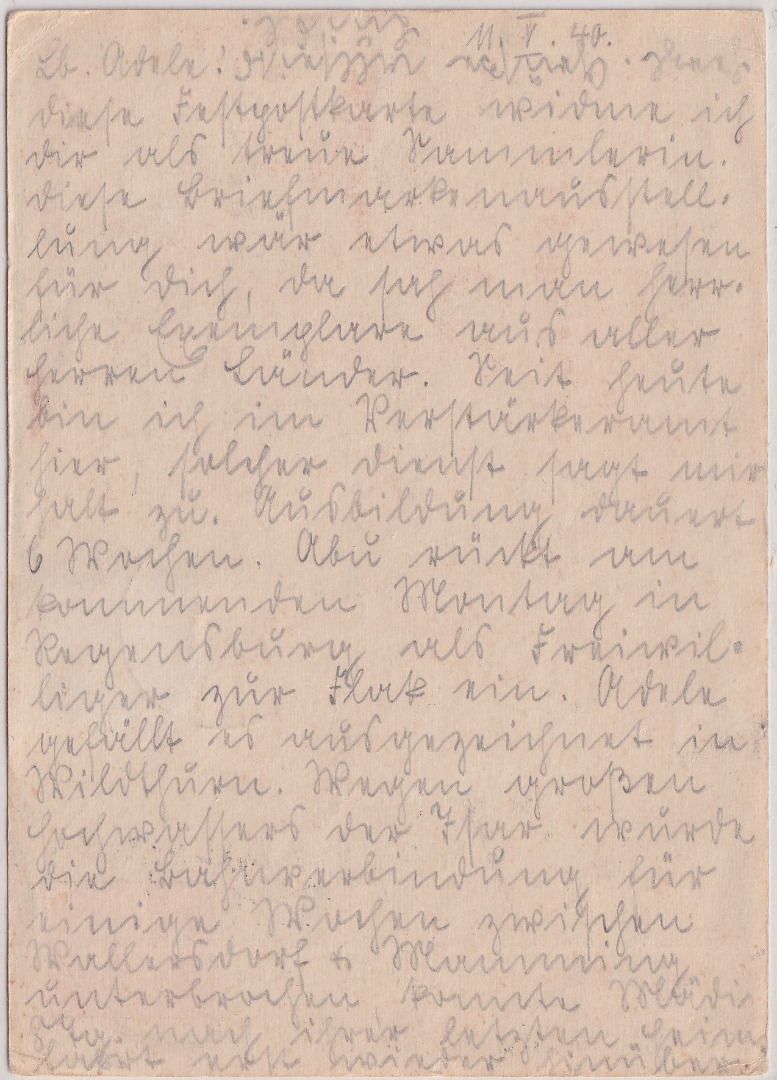 11. V. 40.
Lb. Adele!
diese Festpostkarte widme ich
dir als treue Sammlerin.
Diese Briefmarkenausstell-
lung wär etwas gewesen
für dich, da sah man herr-
liche Exemplare aus aller
Herren Länder. Seit heute
bin ich im Verstärkeramt
hier, solcher Dienst sagt mir
halt zu. Ausbildung dauert
6 Wochen. Abu rückt am
kommenden Montag in
Regensburg als Freiwil-
liger zur Flak ein. Adele
gefällt es ausgezeichnet in
Wildthurn. Wegen großen
Hochwassers der Isar wurde
die Bahnverbindung für
einige Wochen zwischen
Wallersdorf & Mamming
unterbrochen, konnte Mädi
Stg. nach ihrer letzten Heim
fahrt erst wieder hinüber